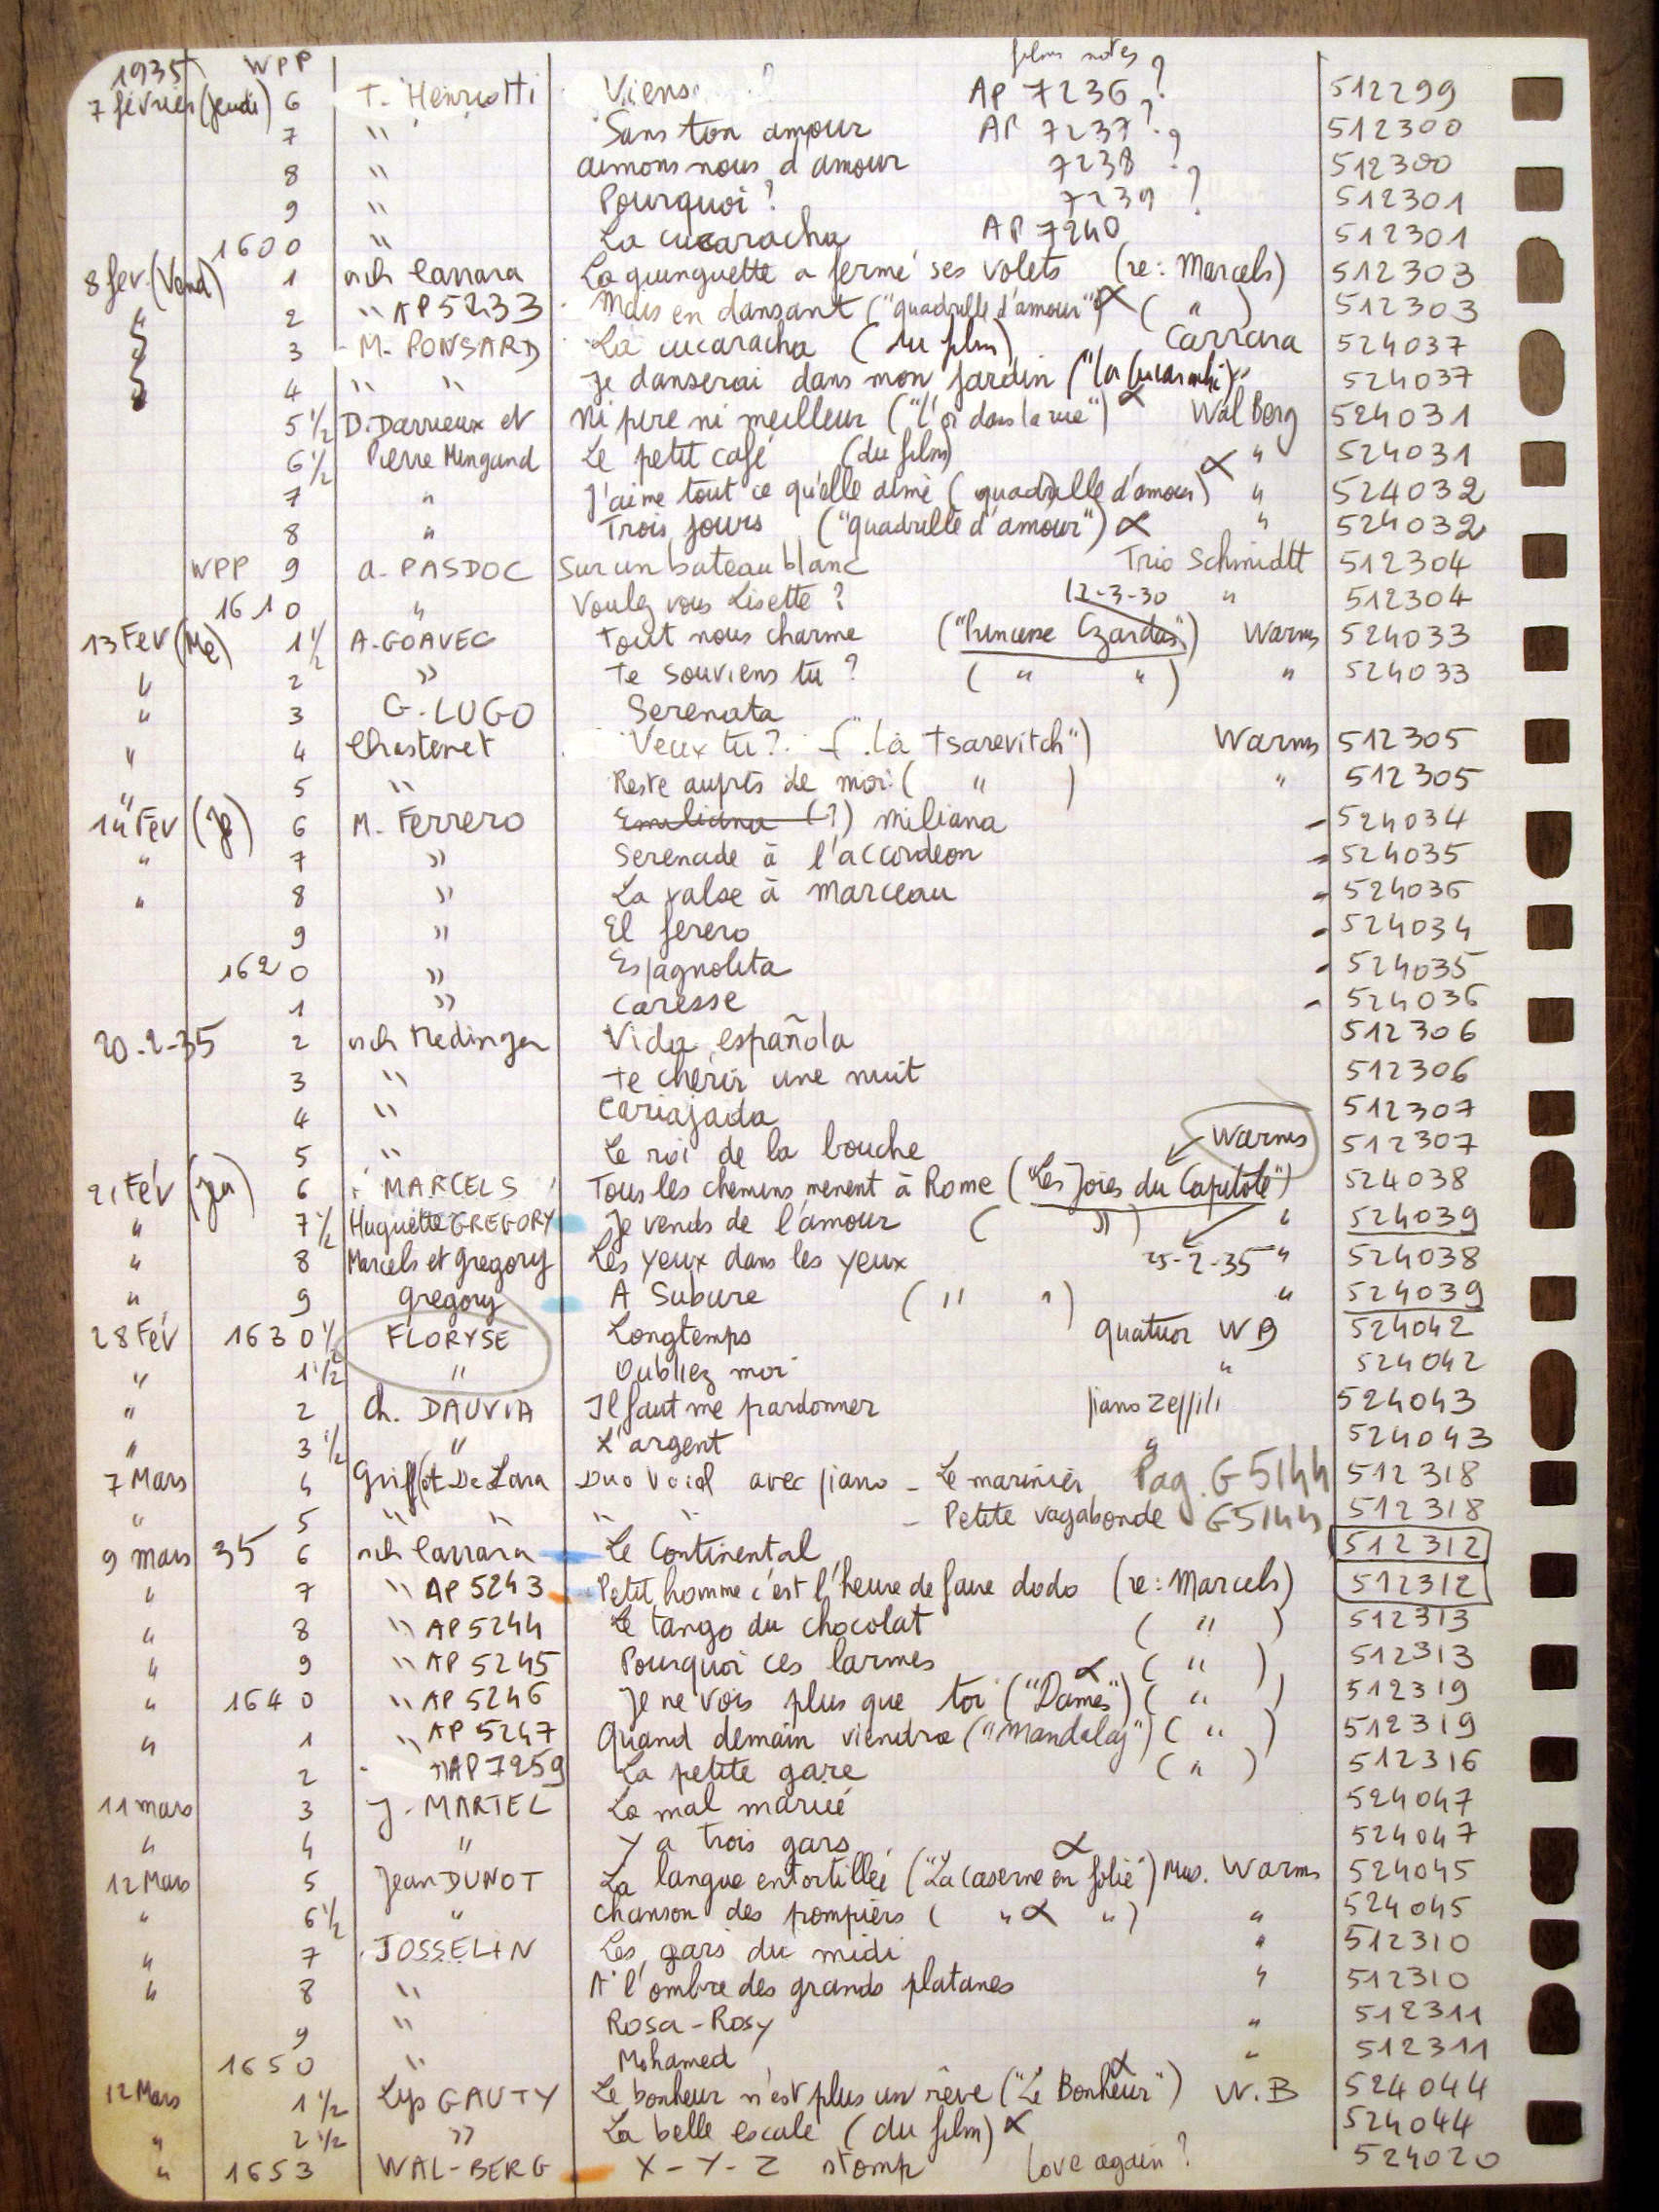 films notes
1935 WPP
7 février (jeudi) 6 T. Henriotti Viens ? AP 7236 ? 512299
7 " Sans ton amour AP 7237 ? 512300
8 " aimons nous d'amour 7238 ? 512300
9 " Pourquoi ? 7239 ? 512301
1600 " La cucaracha AP 7240 512301
8 fev. (Vend) 1 orch Carrara La guinguette a fermé ses volets (re: Marcels) 512303
" 2 " AP 5233 Mais en dansant ("quadrille d'amour") α ( " ) 512303
" 3 M. PONSARD La cucaracha (du film) Carrara 524037
4 " " Je danserai dans mon jardin ("la Cucaracha") 524037
5 1/2 D. Darrieux et Ni pire ni meilleur ("l'or dans la rue") α Wal Berg 524031
6 1/2 Pierre Mingand Le petit café (du film) " 524031
7 " J'aime tout ce qu'elle aime (quadrille d'amour) α " 524032
8 " Trois jours ("quadrille d'amour") α " 524032
WPP 9 a. PASDOC Sur un bateau blanc Trio Schmidtt 512304
1610 " Voulez vous Lisette ? 12-3-30 " 512304
13 Fev (Me) 1 1/2 A. GOAVEC Tout nous charme ("Princesse Czardas") Warms 524033
" 2 " Te souviens tu ? ( " " ) " 524033
" 3 G. LUGO Serenata
" 4 Chastenet Veux tu ? (" La Tsarevitch") Warms 512305
" 5 " Reste auprès de moi ( " ) " 512305
14 Fev (Je) 6 M. Ferrero Emiliana (?) miliana - 524034
" 7 " Serenade à l'accordeon - 524035
" 8 " La valse à marceau - 524036
9 " El ferero - 524034
1620 " Espagnolita - 524035
1 " Caresse - 524036
20-2-35 2 orch Medinger Vida española 512306
3 " Te chérir une nuit 512306
4 " Cariajada 512307
5 " Le roi de la bouche Warms 512307
21 Fév (Jeu) 6 MARCELS Tous les chemins menent à Rome ("Les Joies du Capitole") 524038
" 7 1/2 Huguette GREGORY Je vends de l'amour ( " ) " 524039
" 8 Marcels et Gregory Les yeux dans les yeux 25-2-35 " 524038
" 9 Gregory A Subure ( " " ) " 524039
28 Fév 1630 1/2 FLORYSE Longtemps quatuor WB 524042
" 1 1/2 " Oubliez moi " 524042
" 2 Ch. DAUVIA Il faut me pardonner piano Zeppili 524043
" 3 1/2 " L'argent " 524043
7 Mars 4 Griffot De Lara Duo vocal avec piano - Le marinier Pag. G 5144 512318
" 5 " " " " - Petite vagabonde G5144 512318
9 mars 35 6 orch Carrara Le Continental 512312
" 7 " AP 5243 Petit homme c'est l'heure de faire dodo (re: Marcels) 512312
" 8 " AP 5244 Le tango du chocolat ( " ) 512313
" 9 " AP 5245 Pourquoi ces larmes ( " ) 512313
" 1640 " AP 5246 Je ne vois plus que toi ("Dames") α ( " ) 512319
" 1 " AP 5247 Quand demain viendra ("Mandalay") ( " ) 512319
2 " AP 7259 La petite gare ( " ) 512316
11 mars 3 J. MARTEL La mal mariée 524047
" 4 " Y a trois gars 524047
12 Mars 5 Jean DUNOT La langue entortillée ("La caserne en folie") α Mus. Warms 524045
" 6 1/2 " Chanson des pompiers ( " α " ) " 524045
" 7 JOSSELIN Les gars du midi " 512310
" 8 " A l'ombre des grands platanes " 512310
9 " Rosa-Rosy " 512311
1650 " Mohamed " 512311
12 Mars 1 1/2 Lys GAUTY Le bonheur n'est plus un rêve ("Le Bonheur") α W.B 524044
" 2 1/2 " La belle escale (du film) α 524044
" 1653 WAL-BERG X-Y-Z stomp love again ? 524020